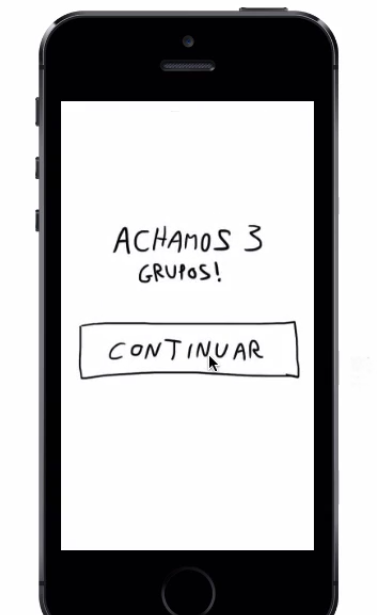 ACHAMOS 3
GRUPOS!
CONTINUAR